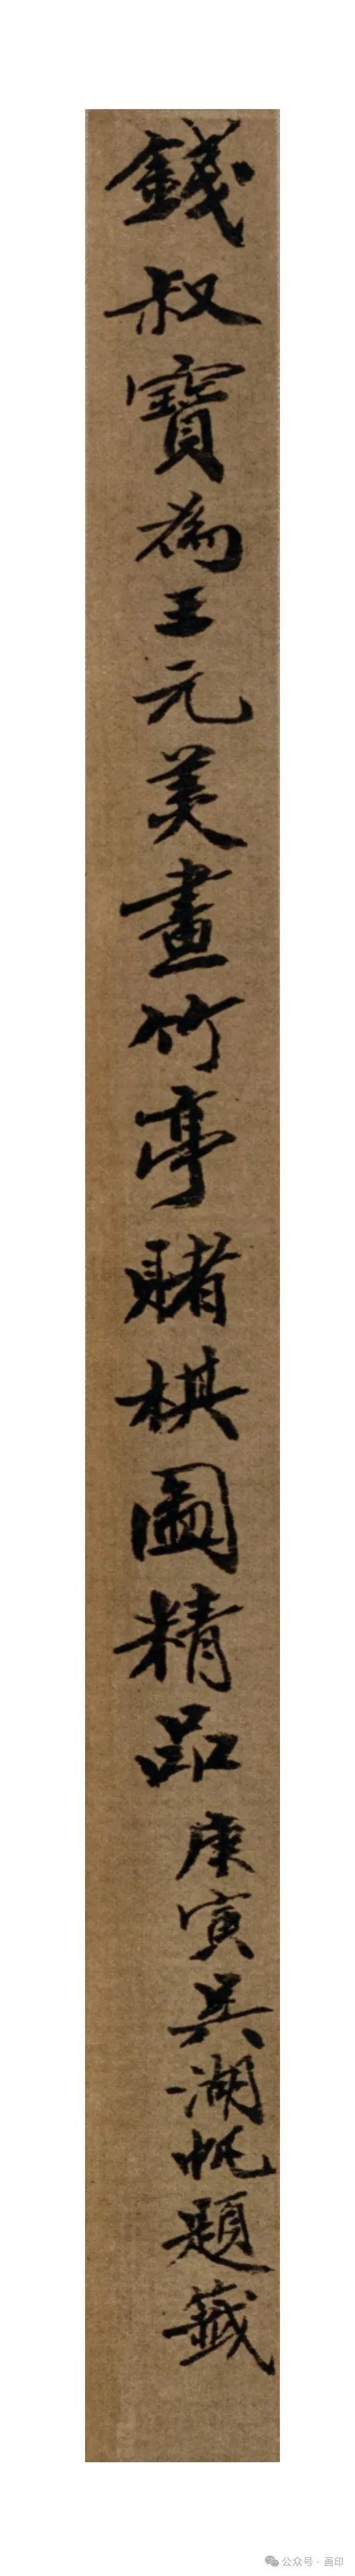 錢叔寶為王元美畫竹亭賭棋圖精品
庚寅吳湖帆題籤
公众号 · 画印